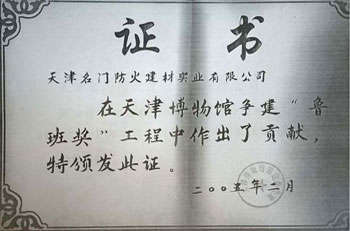 证书
天津名门防火建材实业有限公司
在天津博物馆争建“鲁
班奖”工程中作出了贡献，
特颁发此证。
二〇〇五年二月